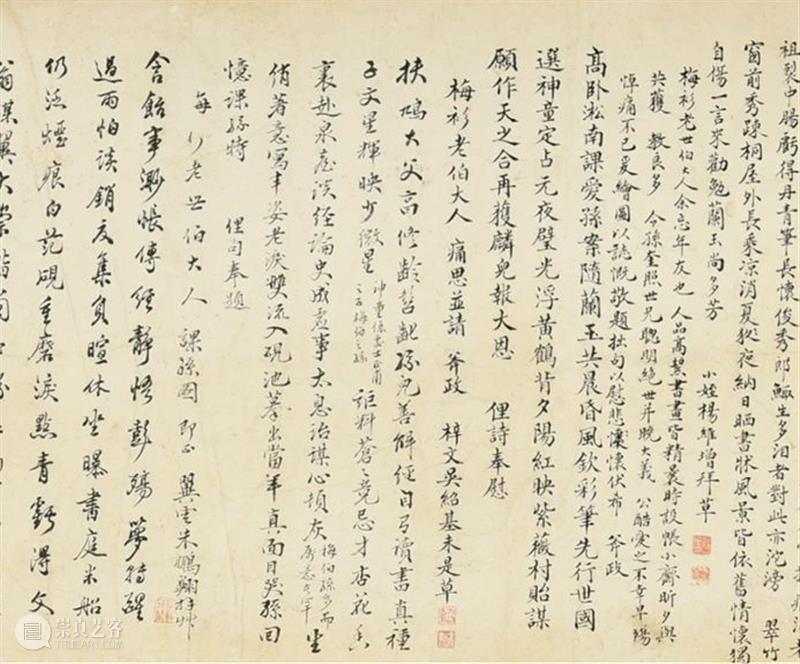 祖裂中腸虧得丹青筆長懷俊秀郎鯫生多泪者對此亦沱滂 翠竹
窗前秀疎桐屋外長乘凉消夏猶夜納日晒書牀風景皆依舊情懷獨
自傷一言來勸勉蘭玉尚多芳
小姪楊維增拜草
梅衫老世伯大人余忘年友也 人品高潔書畫皆精晨時設帳小齋昕夕與
共獲 教良多 令孫奎照世兄聰明絕世并曉大義 公酷愛之不幸早殤
悼痛不已爰繪圖以誌慨敬題拙句以慰悲懷伏希 斧政
高臥淞南課愛孫案隨蘭玉共晨昏風欽彩筆先行世國
選神童定占元夜璧光浮黃鶴背夕陽紅映紫薇村貽謀
願作天之合再獲麟兒報大恩 俚詩奉慰
梅衫老伯大人 痛思並請 斧政 梓文吳紹基未是草
扶鳩大父高修齡髫齔孫兒善解經自号讀書真種
子文星輝映少微星 詎料蒼蒼竟忌才杏花
裹赴泉臺談經論史成虛事太息治謀心頓灰 坐
俏著意寫丰姿老淚雙流入硯池摹出當年真面目哭孫回
憶課孫時 俚句奉題
每行老世伯大人 課孫圖 即正 翼雲朱鵬翔拜草
含飴事渺悵傳經靜悟彭殤夢特醒
過雨怕談銷夏集負暄休坐曝書庭米船
仍泛煙痕白范硯重磨淚點青 得文
翁謀翼大